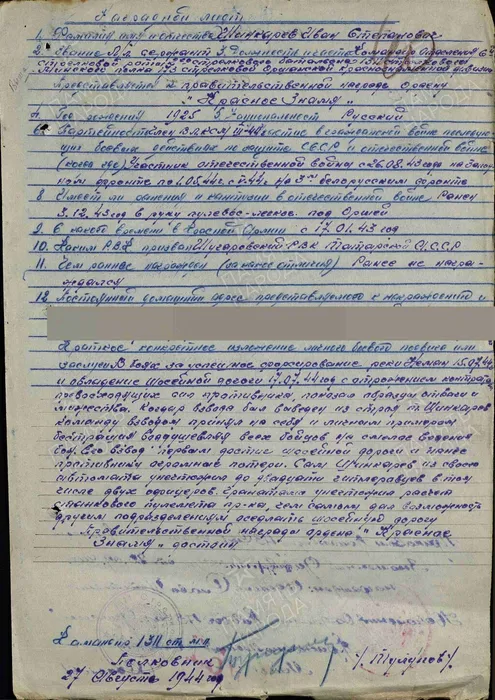 Наградной лист
1. Фамилия имя и отчество Шинкарев Иван Степанович
2. Звание Мл сержант 3 Должность и часть Командир отделения
стрелковой роты стрелкового батальона 1311 стрелкового
Минского полка 173 стрелковой Оршанской Краснознаменной дивизии
Представляется к правительственной награде Ордену
"Красное Знамя"
4. Год рождения 1925 5 Национальность Русский
6. Партийность член ВЛКСМ участие в гражданской войне последую
щих боевых действиях по защите СССР и отечественной войне
(когда где) Участник отечественной войны с 26.08.43 года на Запад
ном фронте по 44г на 3м белорусском фронте
8 Имеет ли ранения и контузии в отечественной войне Ранен
3.12.43 год в руку пулевое-легкое под Оршей
9. С какого времени в Красной Армии с 17.01.43 год
10. Каким РВК призван РВК Татарской АССР
11. Чем раннее награжден (за какие отличия) Ранее не награ-
ждался
12. Постоянный домашний адрес представляемого к награждению и
Краткое конкретное изложение личного боевого подвига или
заслуги В боях за успешное форсирование реки Неман 15.07.44
и овладение шоссейной дороги 17.07.44 год с отражением контратак
превосходящих сил противника, показал образцы отваги и
мужества. Когда взвода был выведен из строя т Шинкарев
команду взводом принял на себя и личным примером
бесстрашия воодушевлял всех бойцов на смелое ведение
боя. Его взвод первым достиг шоссейной дороги и нанес
противнику огромные потери. Сам Шинкарев из своего
автомата уничтожил до двадцати гитлеровцев в том
числе двух офицеров. Гранатами уничтожил расчет
станкового пулемета пр-ка, чем самым дал возможность
другим подразделениям оседлать шоссейную дорогу
Правительственной награды ордена "Красное
Знамя" достоин
Командир 1311 стр
Полковник
27 Августа 1944 год